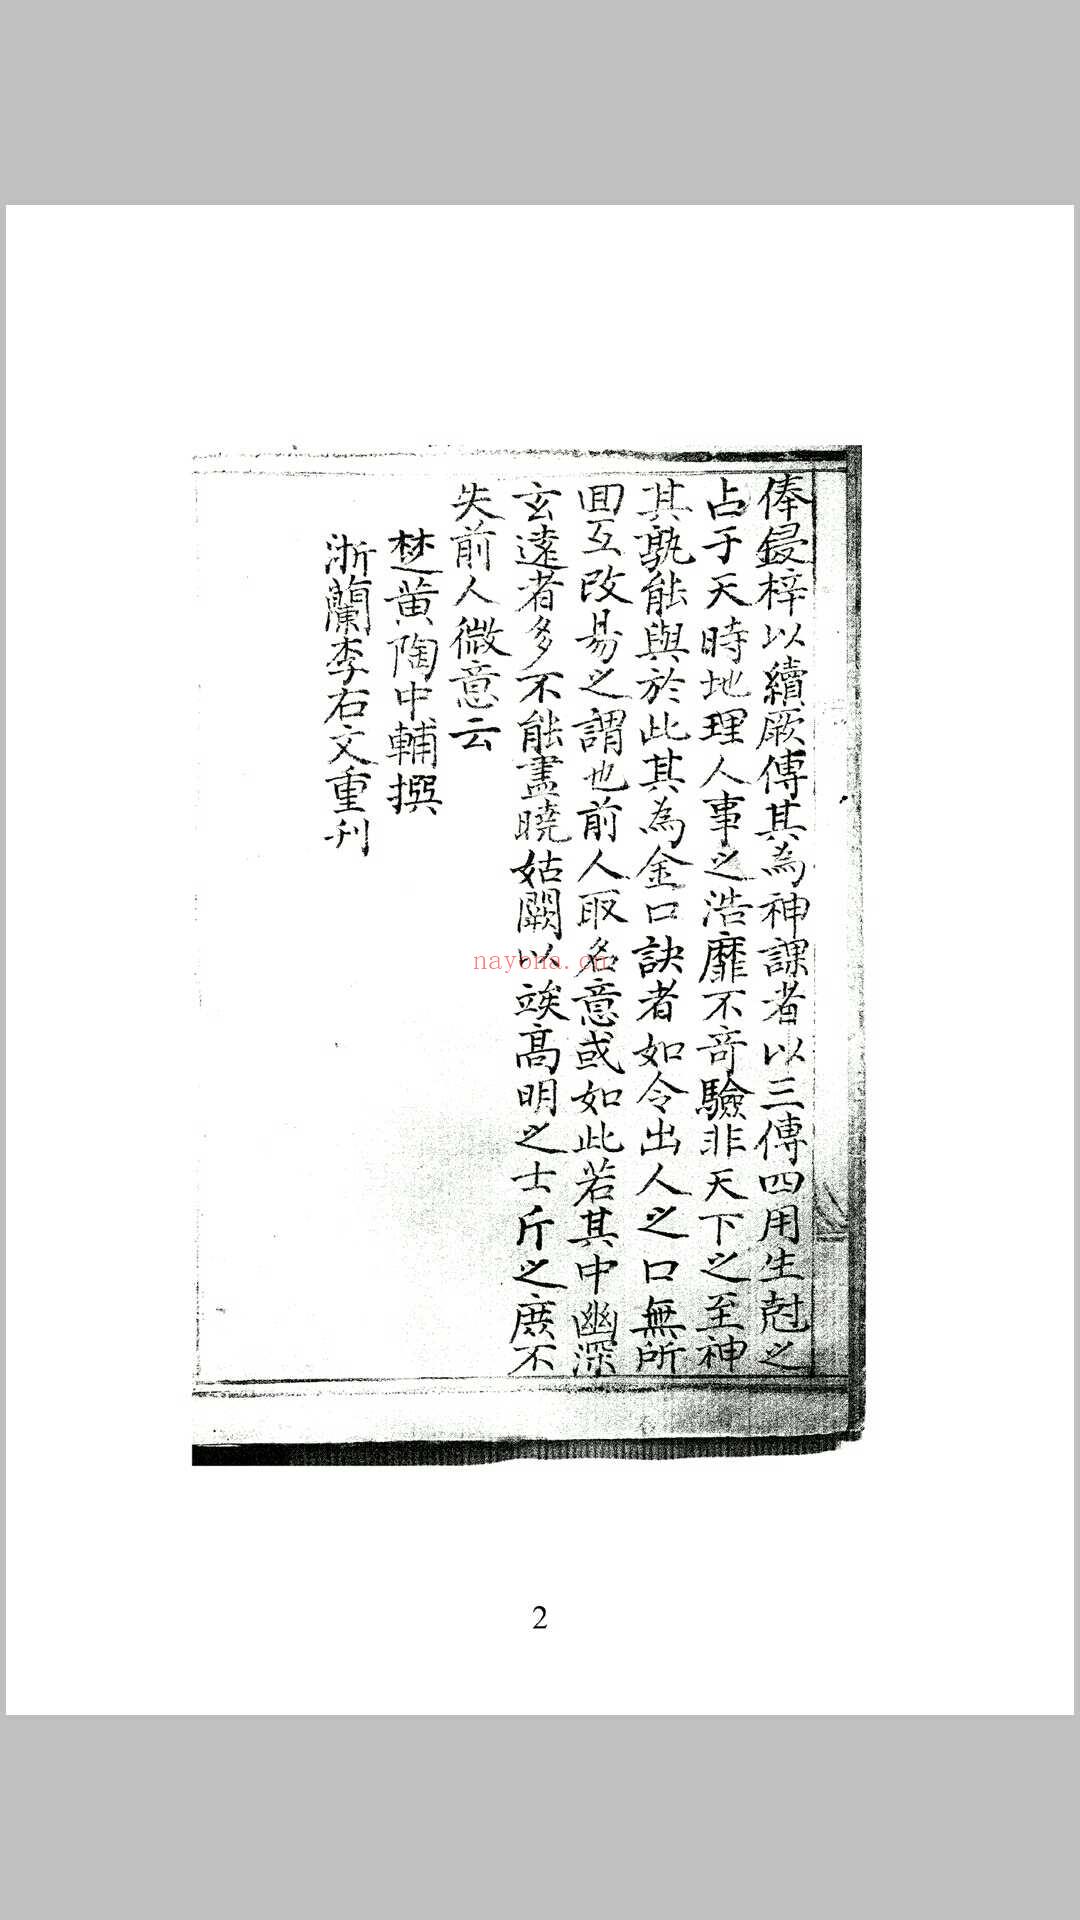 俸鋟梓以續厥傳其為神課者以三傳四用生尅之
占于天時地理人事之浩靡不竒驗非天下之至神
其孰能與於此其為金口訣者如令出人之口無所
囬互改易之謂也前人取名意或如此若其中幽深
玄遠者多不能盡曉姑闕以竢髙明之士斤之庻不
失前人微意云
楚黄陶中輔撰
浙蘭李右文重刋
nayona.cn
2